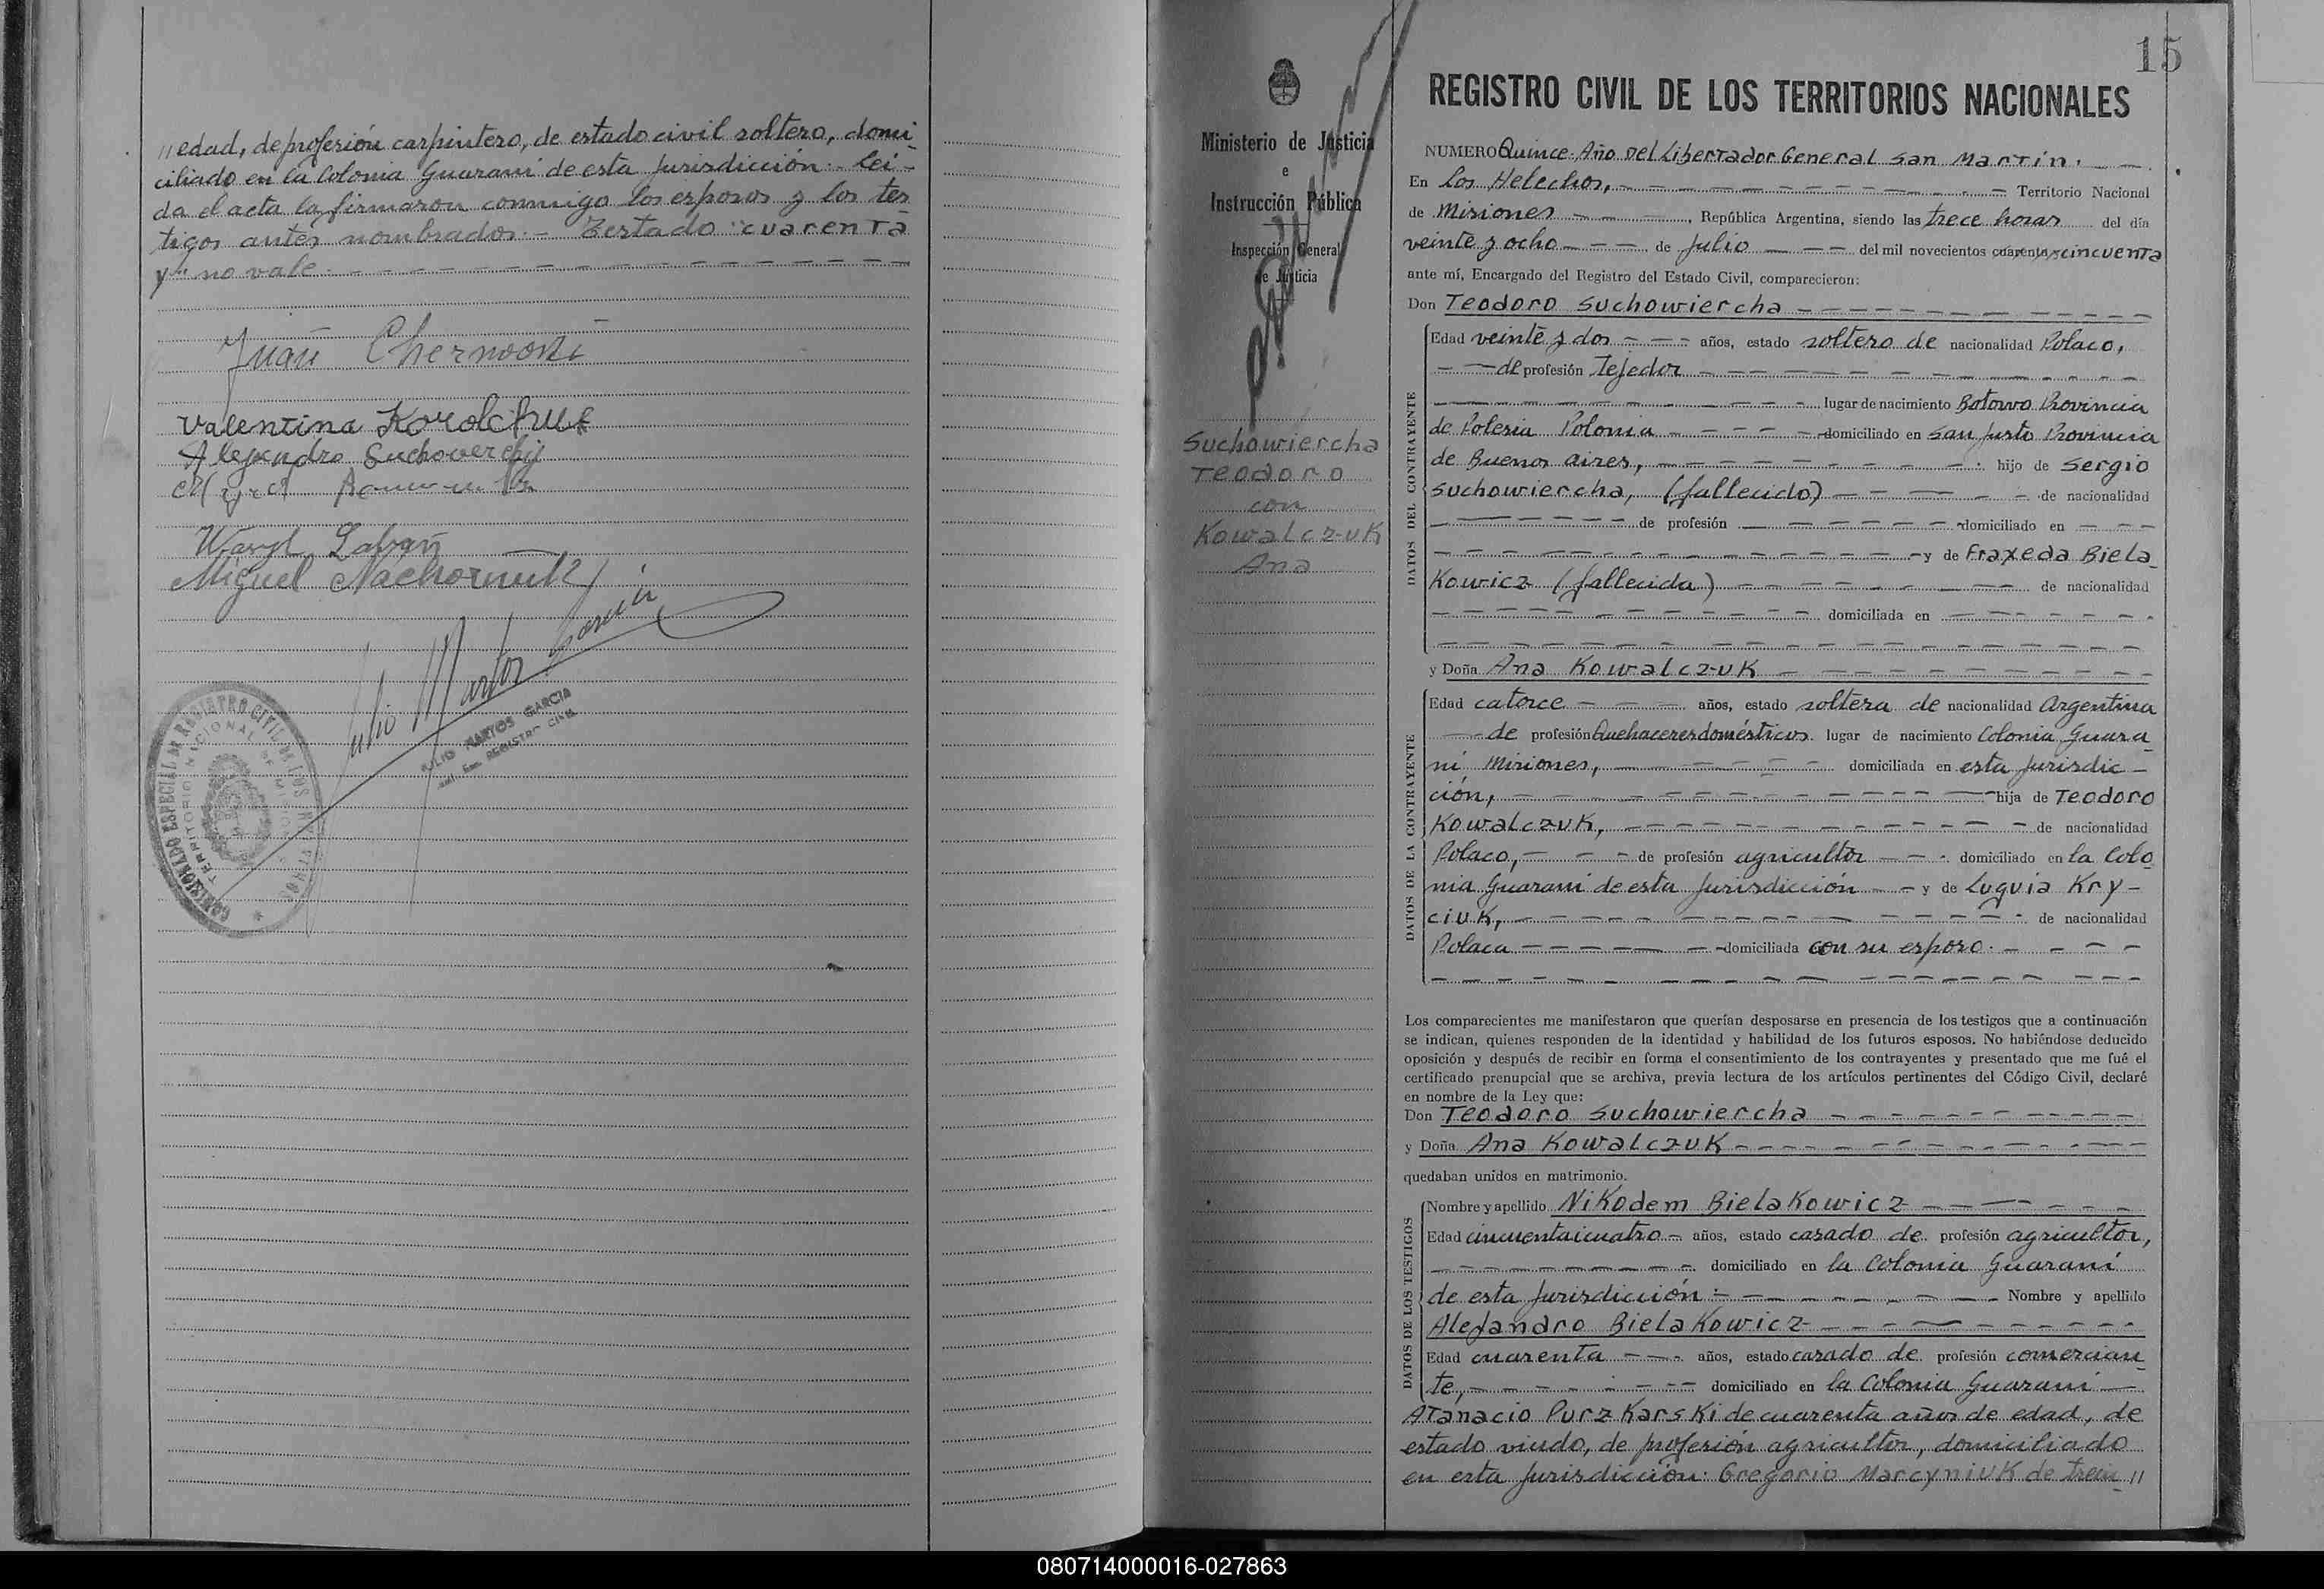 // edad, de profesión carpintero, de estado civil soltero, domi-
ciliado en la Colonia Guaraní de esta Jurisdicción.- Lei-
da el acta la firmaron conmigo los esposos y los tes
tigos antes nombrados.- Testado "cuarenta
y" no vale.
Juan
Valentina Korolchuk
Alejandro
Miguel
Julio Martos Garcia
JULIO MARTOS GARCIA
REGISTRO CIVIL
15
Ministerio de Justicia
e
Instrucción Pública
Inspección General
de Justicia
Suchowiercha
Teodoro
con
Kowalczuk
Ana
REGISTRO CIVIL DE LOS TERRITORIOS NACIONALES
NUMERO Quince. Año Del Libertador General San Martín.
En Los Helechos, Territorio Nacional
de Misiones República Argentina, siendo las trece horas del día
veinte y ocho de Julio del mil novecientos cuarenta y cincuenta
ante mí, Encargado del Registro del Estado Civil, comparecieron:
Don Teodoro Suchowiercha
DATOS DEL CONTRAYENTE
Edad veinte y dos años, estado soltero de nacionalidad Polaco,
de profesión Tejedor
lugar de nacimiento Botowo Provincia
de Polesia Polonia domiciliado en San Justo Provincia
de Buenos Aires, hijo de Sergio
Suchowiercha, (fallecido) de nacionalidad
de profesión domiciliado en
y de Fraxeda Biela
Kowicz (fallecida) de nacionalidad
domiciliada en
y Doña Ana Kowalczuk
DATOS DE LA CONTRAYENTE
Edad catorce años, estado soltera de nacionalidad Argentina
de profesión Quehaceres domésticos. lugar de nacimiento Colonia Guara
ní Misiones, domiciliada en esta Jurisdic-
ción, hija de Teodoro
Kowalczuk, de nacionalidad
Polaco, de profesión agricultor domiciliado en la Colo
nia Guaraní de esta Jurisdicción y de Luguia Kry-
ciuk, de nacionalidad
Polaca domiciliada con su esposo.
Los comparecientes me manifestaron que querían desposarse en presencia de los testigos que a continuación
se indican, quienes responden de la identidad y habilidad de los futuros esposos. No habiéndose deducido
oposición y después de recibir en forma el consentimiento de los contrayentes y presentado que me fué el
certificado prenupcial que se archiva, previa lectura de los artículos pertinentes del Código Civil, declaré
en nombre de la Ley que:
Don Teodoro Suchowiercha
y Doña Ana Kowalczuk
quedaban unidos en matrimonio.
DATOS DE LOS TESTIGOS
Nombre y apellido Nikodem Bielakowicz
Edad cincuentaicuatro años, estado casado de profesión agricultor,
domiciliado en la Colonia Guaraní
de esta Jurisdicción. Nombre y apellido
Alejandro Bielakowicz
Edad cuarenta años, estado casado de profesión comercian
te, domiciliado en la Colonia Guaraní
Atanacio Purzkarski de cuarenta años de edad, de
estado viudo, de profesión agricultor, domiciliado
en esta Jurisdicción. Gregorio Marcyniuk de trein //
080714000016-027863